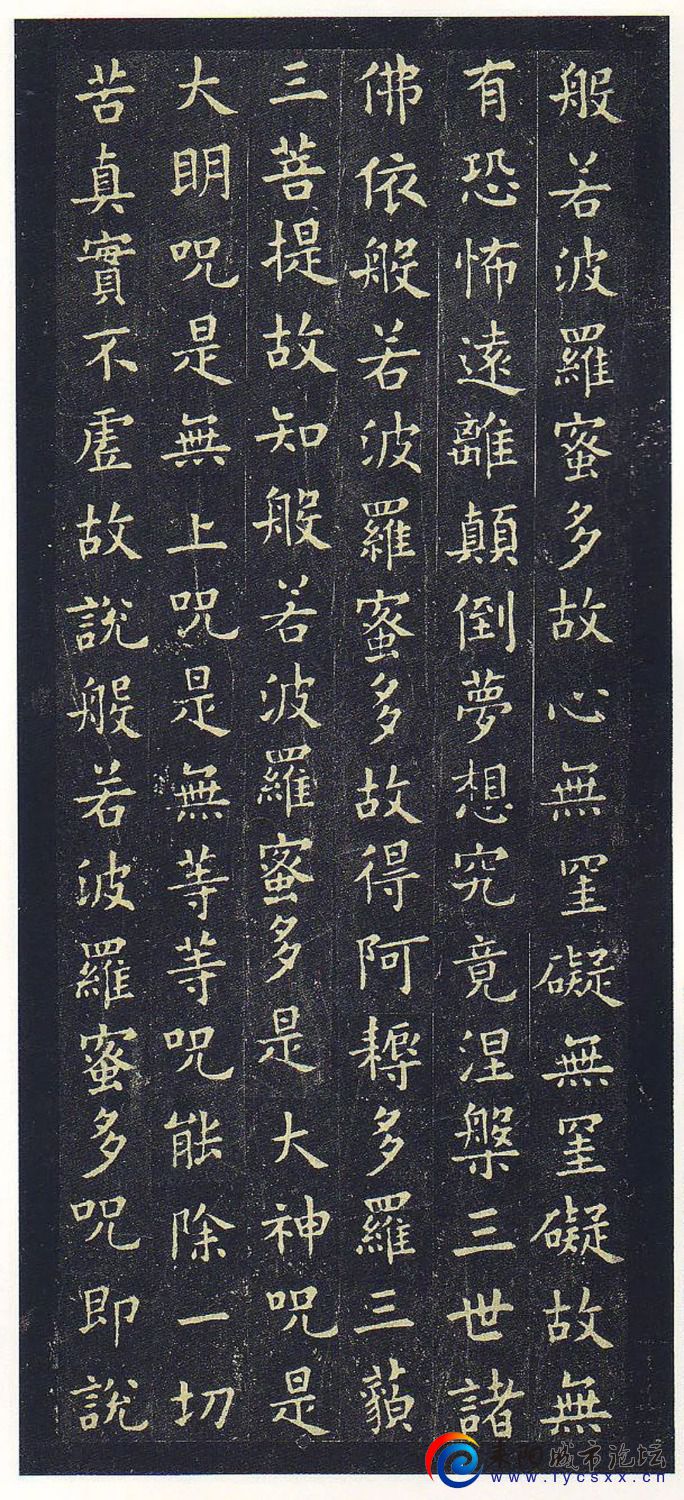 般若波羅蜜多故心無罣礙無罣礙故無
有恐怖遠離顛倒夢想究竟涅槃三世諸
佛依般若波羅蜜多故得阿耨多羅三藐
三菩提故知般若波羅蜜多是大神呪是
大明呪是無上呪是無等等呪能除一切
苦真實不虛故說般若波羅蜜多呪即說
耒阳城市论坛
www.lycsxx.cn